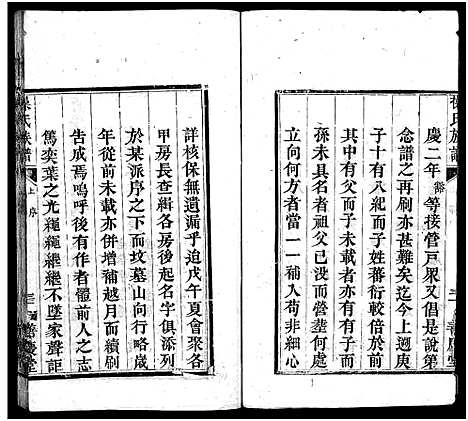 慶二年𧙗等接管戸眾又曰是說第
念譜之再刷亦甚難矣迄今上遡庚
子十有八紀而子姓蕃衍前後載者
其中有有父而子未載者亦有有子
孫未具名者祖父已没而營塟何處
立向何方者當一一補入苟非細心
詳核保無遺漏乎迨戊午夏會聚各
甲房長查緝各房後起名字俱添列
於某派序之下而坟墓山向行略歲
年從前未載亦併增補越月而續刷
告成焉嗚呼後有作者體前人之志
篤奕葉之光繩繩繼繼不墜家聲詎
上序
三
善慶堂